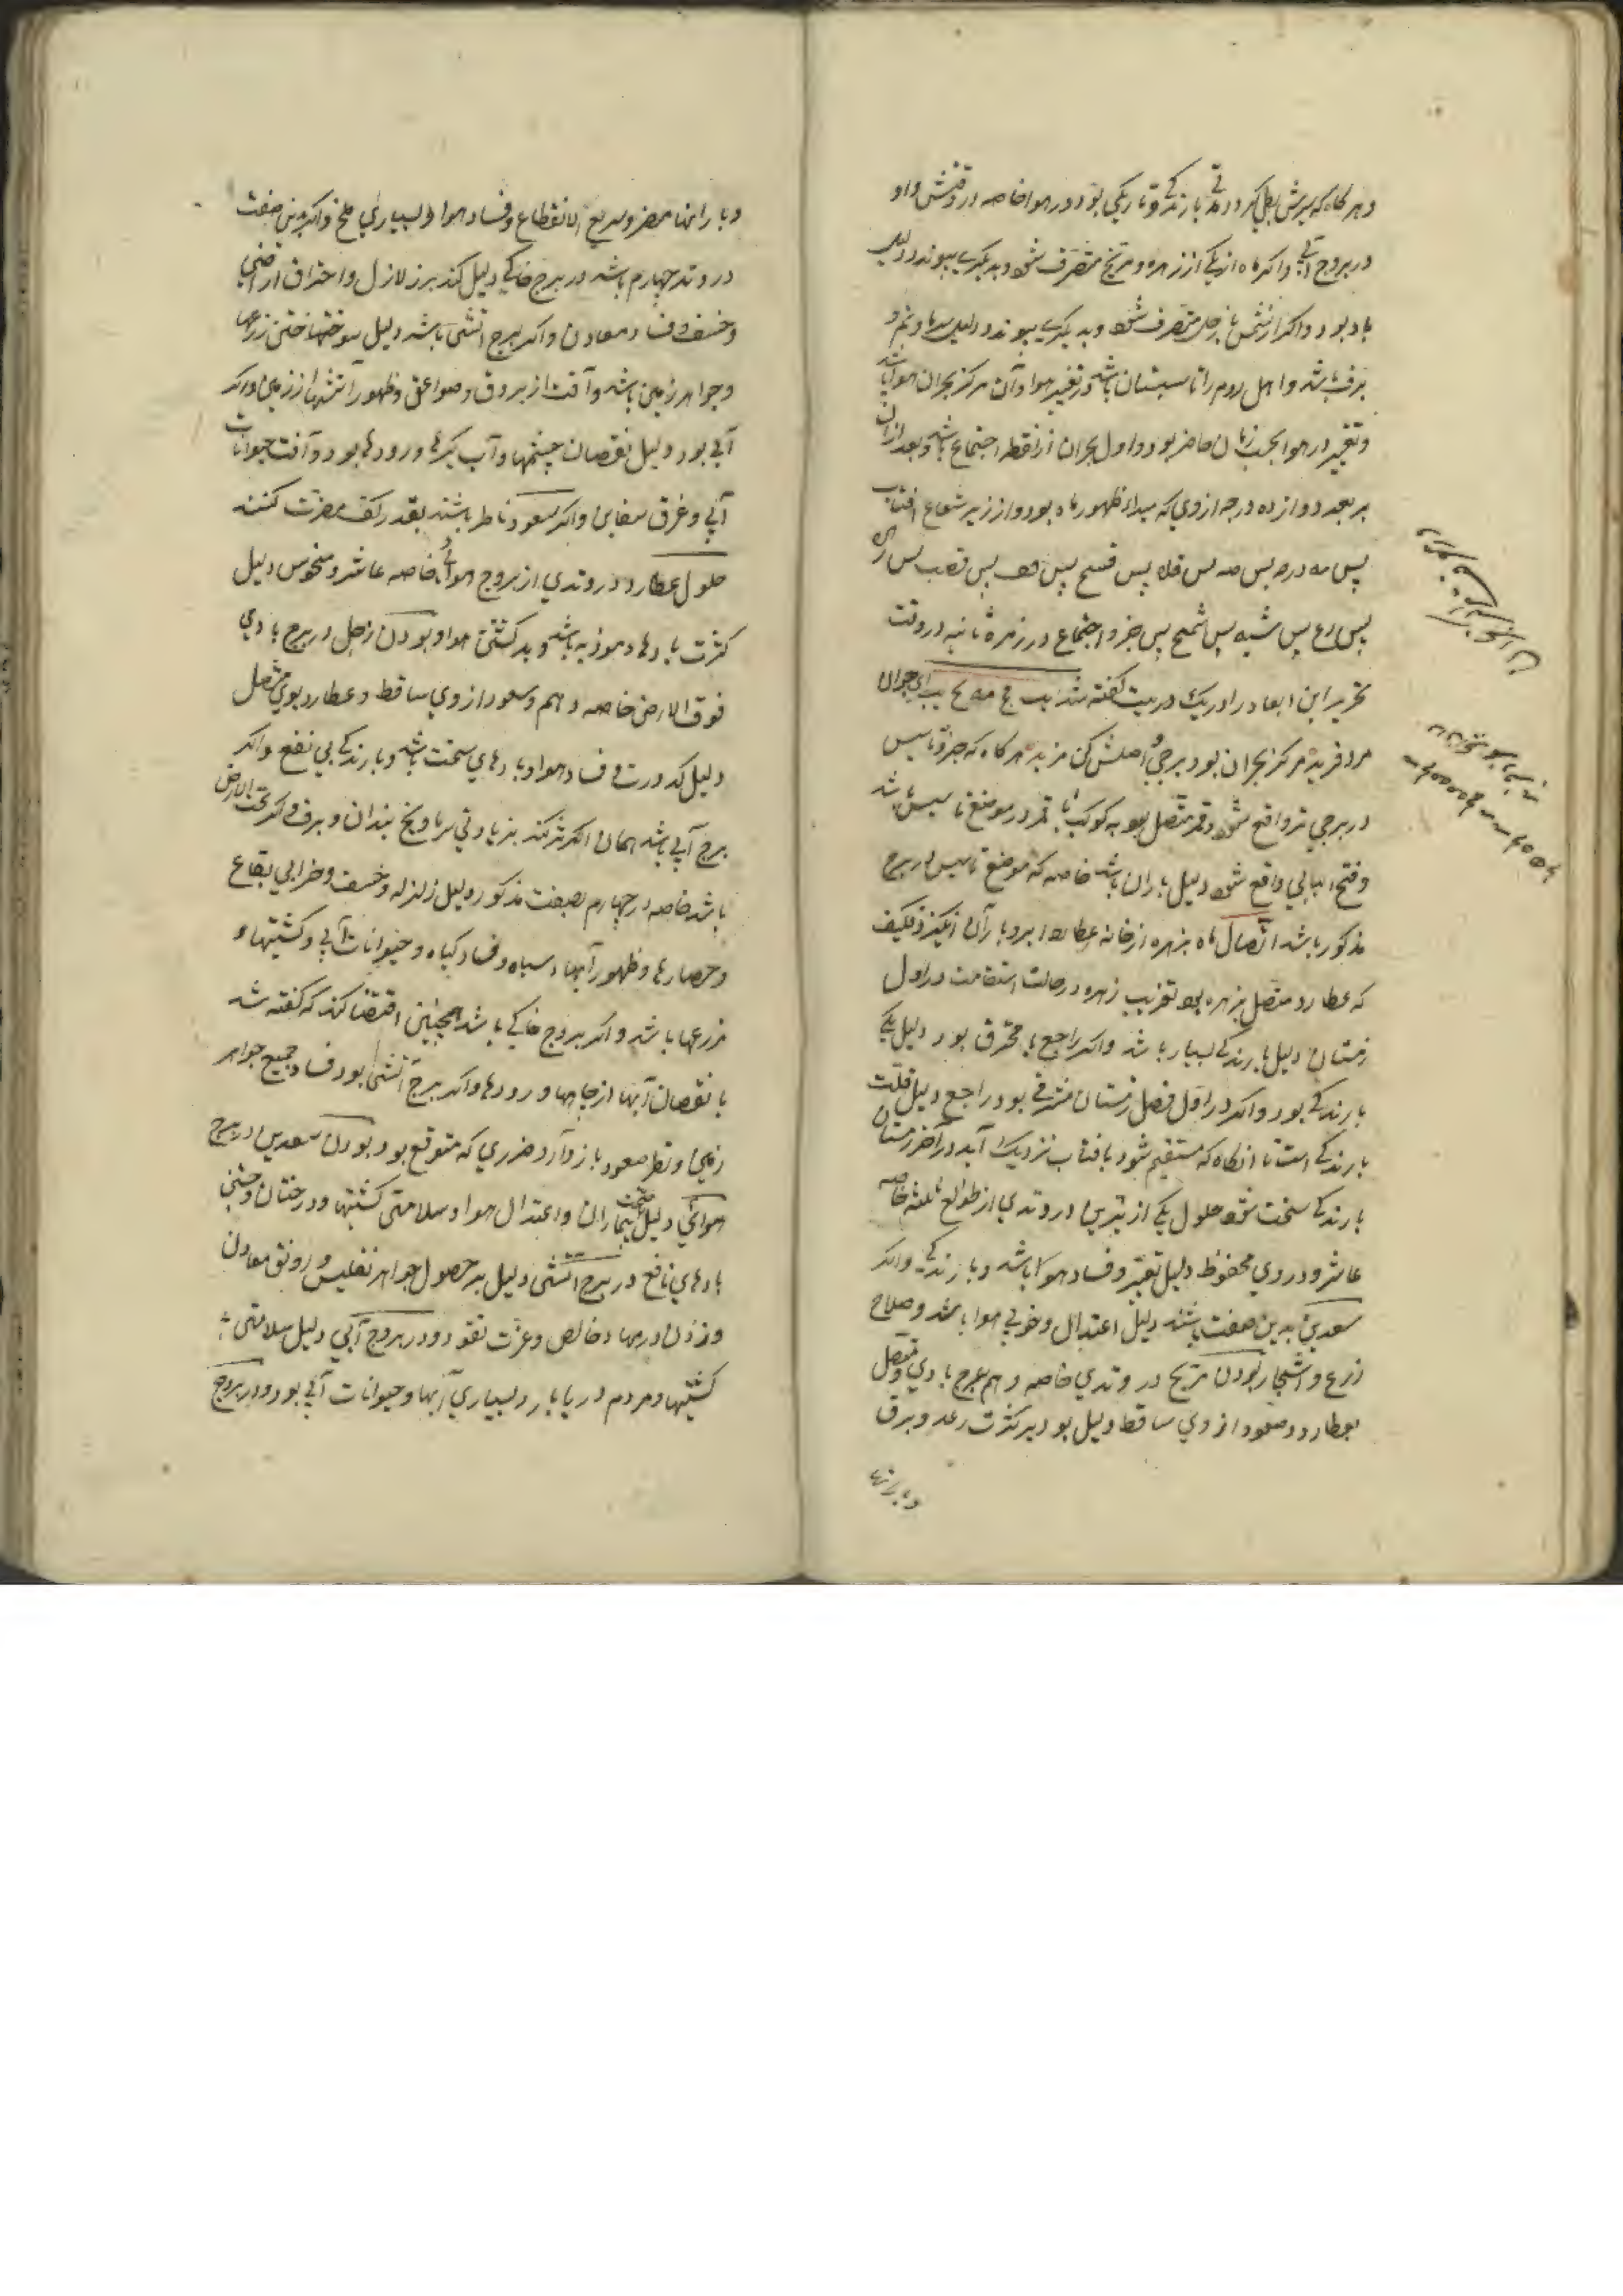 و هر کاه که پرش بطل کرد دلیل بارندکی و تاریکی بود در هوا خاصه در وقتش و او
در بروج آبی و اکر ماه از یکی از زهره و مریخ منصرف شود و بدیکری پیوندد دلیل
باد بود و اکر از شمس یا زحل منصرف شود و بدیکری پیوندد دلیل سرما و نم و
برف باشد و اهل روم را تاسیسات باشد در تغییر هوا و آن مرکز بحران هوا باشد
و تغییر در هوا بحسب زمان حاضر بود و اول بحران از نقطه اجتماع باشد و بعد ازان
بر بعد دوازده درجه از وی که مبداء ظهور ماه بود و از زیر شعاع افتاب
پس مه درجه پس صه پس قله پس قسح پس قف پس قصب پس
پس رع پس شیه پس شمح پس جزو اجتماع در زمره ثانیه در وقت
تحریر این ابعاد را در یک دو بیت کفته شد یب مح مه مح یب ای جوان
مرد فرید مرکز بحران بود برجی اصلش کن مزید هر کاه که جزو تاسیس
در برجی تر واقع شود و قمر متصل بود به کوکب یا قمر در موضع تاسیس باشد
و فتح الباب واقع شود دلیل باران باشد خاصه که موضع تاسیس در برج
مذکور باشد اتصال ماه بزهره از خانه عطارد ابر و باران انکیزد فکیف
که عطارد متصل بزهره بود تغریب زهره در حالت استقامت در اول
زمستان دلیل بارندکی بسیار باشد و اکر راجع یا محترق بود دلیل یکی
بارندکی بود و اکر در اول فصل زمستان مشرقی بود راجع دلیل قلت
بارندکی است تا انکاه که مستقیم شود بافتاب نزدیک آید در آخر زمستان
بارندکی سخت شود حلول یکی از نیرین در وتدی از طوالع ثلثه خاصه
عاشر و در وی محفوظ دلیل تغیر و فساد هوا باشد و بارندکی و اکر
سعدین بدین صفت باشند دلیل اعتدال و خوبی هوا باشد و صلاح
زرع و اشجار بودن مریخ در وتدی خاصه دهم برج بادی و متصل
بعطارد و سعود از وی ساقط دلیل بود بر کثرت رعد و برق
و بارانها
و بارانها مضر و سریع الانقطاع و فساد هوا و بسیاری ملخ و اکر بدین صفت
در وتد چهارم باشد در برج خاکی دلیل کند بر زلازل و احتراق اراضی
و خسف و فساد معادن و اکر برج آتشی باشد دلیل سوختها ختن زرها
و جواهر زمین باشد و آفت از بروق و صواعق و ظهور آتشها از زمین و اکر
آبی بود دلیل نقصان چشمها و آب کیرها و رودها بود و آفت حیوانات
آبی و غرق سفاین و اکر سعود ناظر باشند بقدر کف مضرت کنند
حلول عطارد در وتدی از بروج هوائی خاصه عاشر و منحوس دلیل
کثرت بادهاء موذیه باشد و بد کشتن هوا و بودن زحل در برج بادی
فوق الارض خاصه دهم و سعود از وی ساقط و عطارد بوی متصل
دلیل کدورت و فساد هوا و بادهای سخت باشد و بارندکی بی نفع و اکر
برج آبی باشد همان اثر کند بزیادتی سرما و یخ بندان و برف و اکر تحت الارض
باشد خاصه در چهارم بصفت مذکور دلیل زلزله و خسف و خرابی بقاع
و حصارها و ظهور آبهاء سیاه و فساد کیاه و حیوانات آبی و کشتیها و
مزرعها باشد و اکر بروج خاکی باشد همچنین اقتضا کند که کفته شد
با نقصان آبها از چاهها و رودها و اکر برج آتشی بود فساد جمیع جواهر
زمین و نظر سعود باز دارد ضرری که متوقع بود بودن سعدین در برج
هوائی دلیل صحت بیماران و اعتدال هوا و سلامتی کشتیها و درختان و جستن
بادهای نافع در برج آتشی دلیل بر حصول جواهر نفیس و رونق معادن
وزدن درمهاء خالص و عزت نقود و در بروج آبی دلیل سلامتی
کشتیها و مردم دریابار و بسیاری آبها و حیوانات آبی بود و در بروج